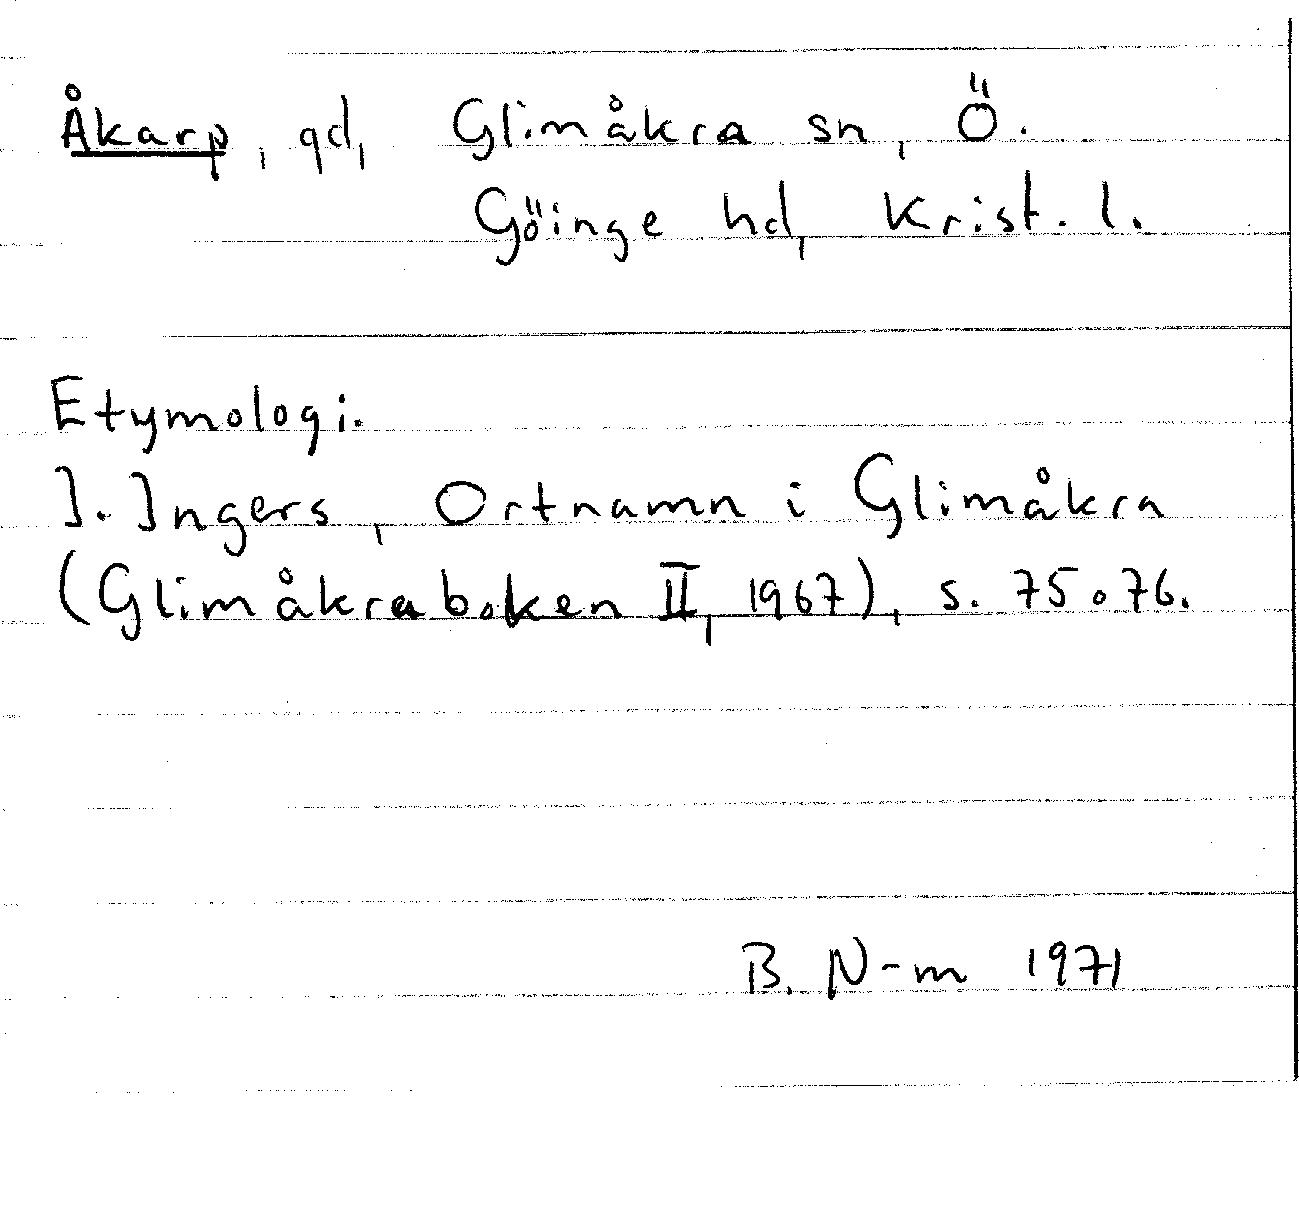 Åkarp, gd, Glimåkra sn, Ö.
Göinge hd, Krist. l.
Etymologi.
I. Ingers, Ortnamn i Glimåkra
(Glimåkraboken II, 1967), s. 75 o 76.
B. N-m 1971